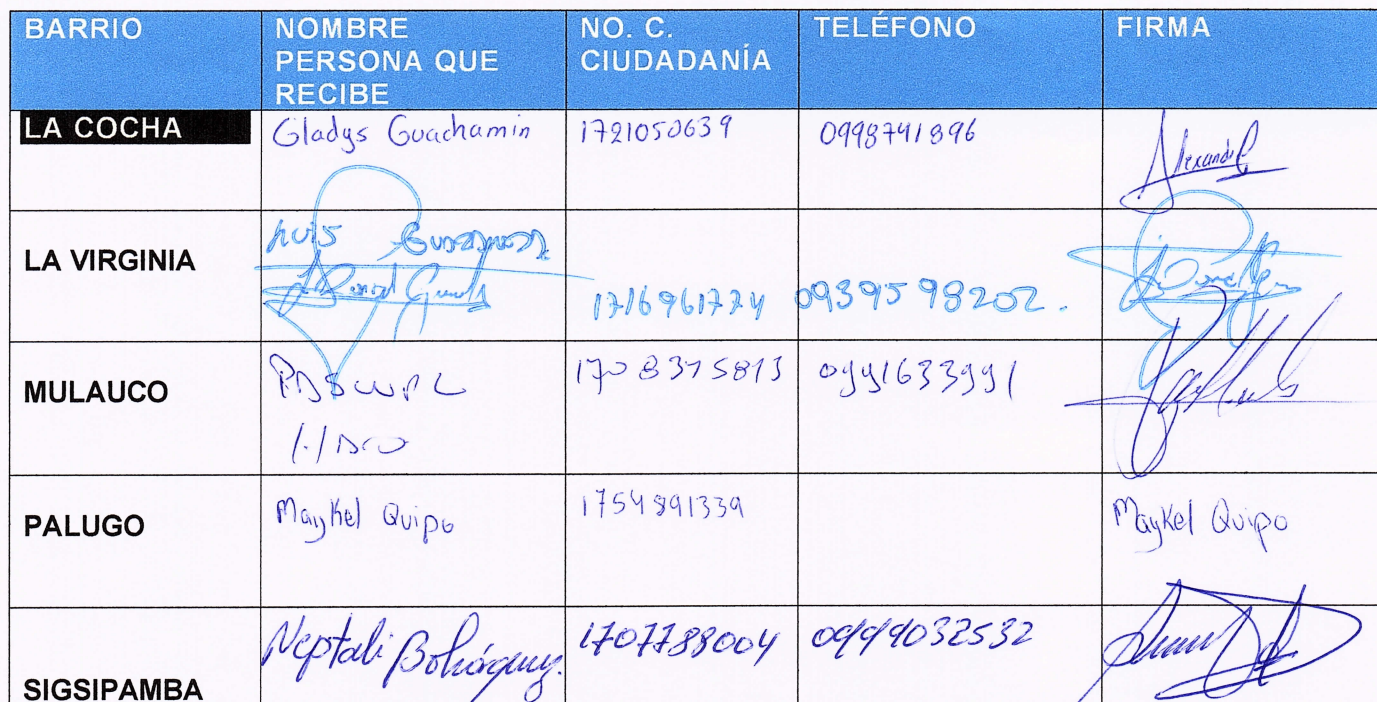 BARRIO
NOMBRE PERSONA QUE RECIBE
NO. C. CIUDADANÍA
TELÉFONO
FIRMA
LA COCHA
Gladys Guachamin
1721050639
0998741896
LA VIRGINIA
Luis
1716961774
0939598202.
MULAUCO
1708375813
0991633991
PALUGO
Maykel Quipo
1754891339
Maykel Quipo
SIGSIPAMBA
Neptali Bohórquez.
1707788004
0999032532